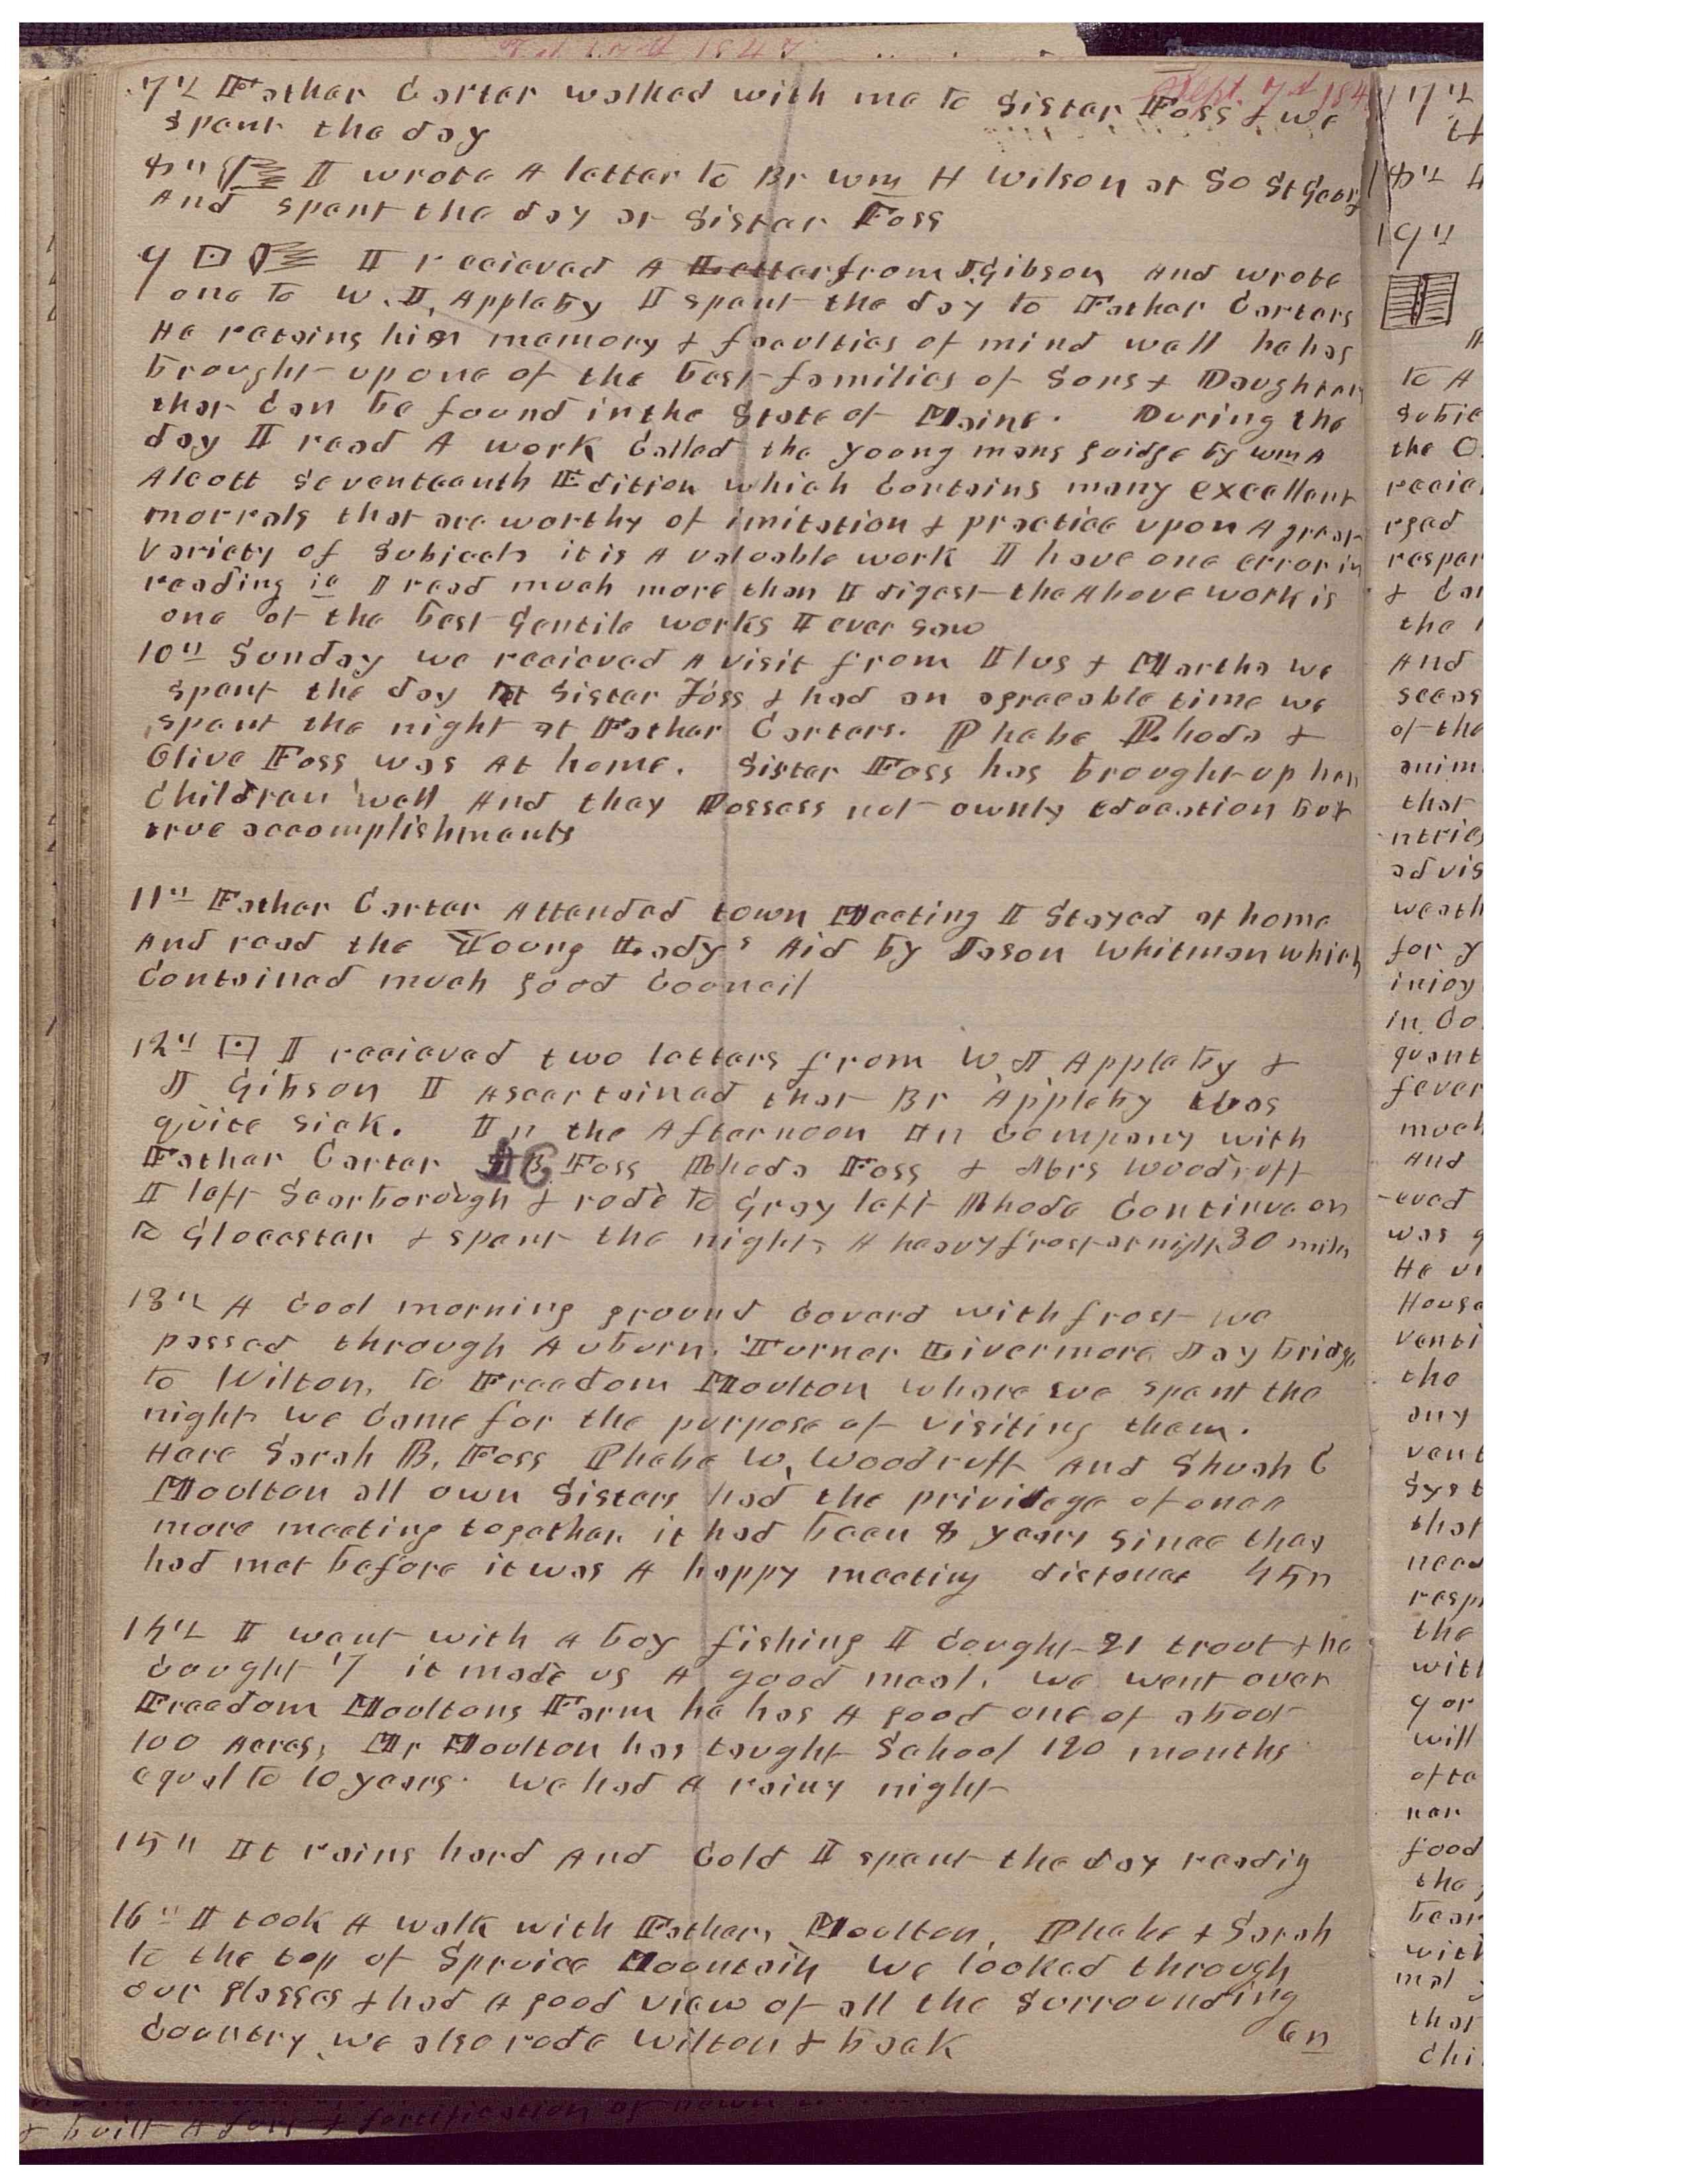 Sept. 7th 184
7th Father Carter walked with me to Sister Foss & we
spent the day
8th I wrote A letter to Br Wm H Wilson at So St Georg
And spent the day at Sister Foss
9 I recieved A Letter from J. Gibson And wrote
one to W. I. Appleby I spent the day to Father Carters
He retains him memory & faculties of mind well he has
brought up one of the best families of Sons & Daughters
that Can be found in the State of Maine. During the
day I read A work Called the young mans guidge by Wm A
Alcott Seventeenth Edition which Contains many excellent
morrals that are worthy of imitation & practice upon A great
variety of Subjects it is A valuable work I have one error in
reading ie I read much more than I digest the Above work is
one of the best Gentile works I ever saw
10th Sunday we recieved A visit from Ilus & Martha we
spent the day At Sister Foss & had an agreeable time we
spent the night at Father Carters. Phebe Rhoda &
Olive Foss was At home. Sister Foss has brought up her
Children well And they Possess not ownly education but
true accomplishments
11th Father Carter Attended town Meeting I Stayed at home
And read the Young Lady's Aid by Jason Whitman which
Contained much good Council
12th I recieved two letters from W. I Appleby &
J Gibson I Ascertained that Br Appleby was
quite sick. In the Afternoon In Company with
Father Carter Foss Rhoda Foss & Mrs Woodruff
I left Scarborough & rode to Gray left Rhoda Continue on
to Glocester & spent the night. A heavy frost at night 30 miles
13th A Cool morning ground Coverd with frost we
passed through Auburn, Turner Livermore Jay bridge
to Wilton, to Freedom Moulton where we spent the
night we Came for the purpose of visiting them.
Here Sarah B. Foss Phebe W, Woodruff And Shuah C
Moulton all own Sisters had the privilege of once
more meeting together. it had been 8 years since they
had met before it was A happy meeting distance 45 m
14th I went with A boy fishing I Caught 21 trout & he
Caught 7 it made us A good meal. we went over
Freedom Moultons Farm he has A good one of about
100 Acres, Mr Moulton has taught School 120 months
equal to 10 years. We had A rainy night
15th It rains hard And Cold I spent the day readig
16th I took A walk with Father, Moulton, Phebe & Sarah
to the top of Spruice Mountain we looked through
our glasses & had A good view of all the Surrounding
Country we also rode Wilton & back 6 m
17th
18th A
19th
to A
Subje
the
recie
read
respe
the
And
of the
anim
that
ntries
advis
for y
injoy
in Co
quant
fever
much
And
-eved
was
He
House
venti
the
any
vent
Syst
that
need
resp
the
with
9 or
will
ofte
food
the
bear
with
that
chi